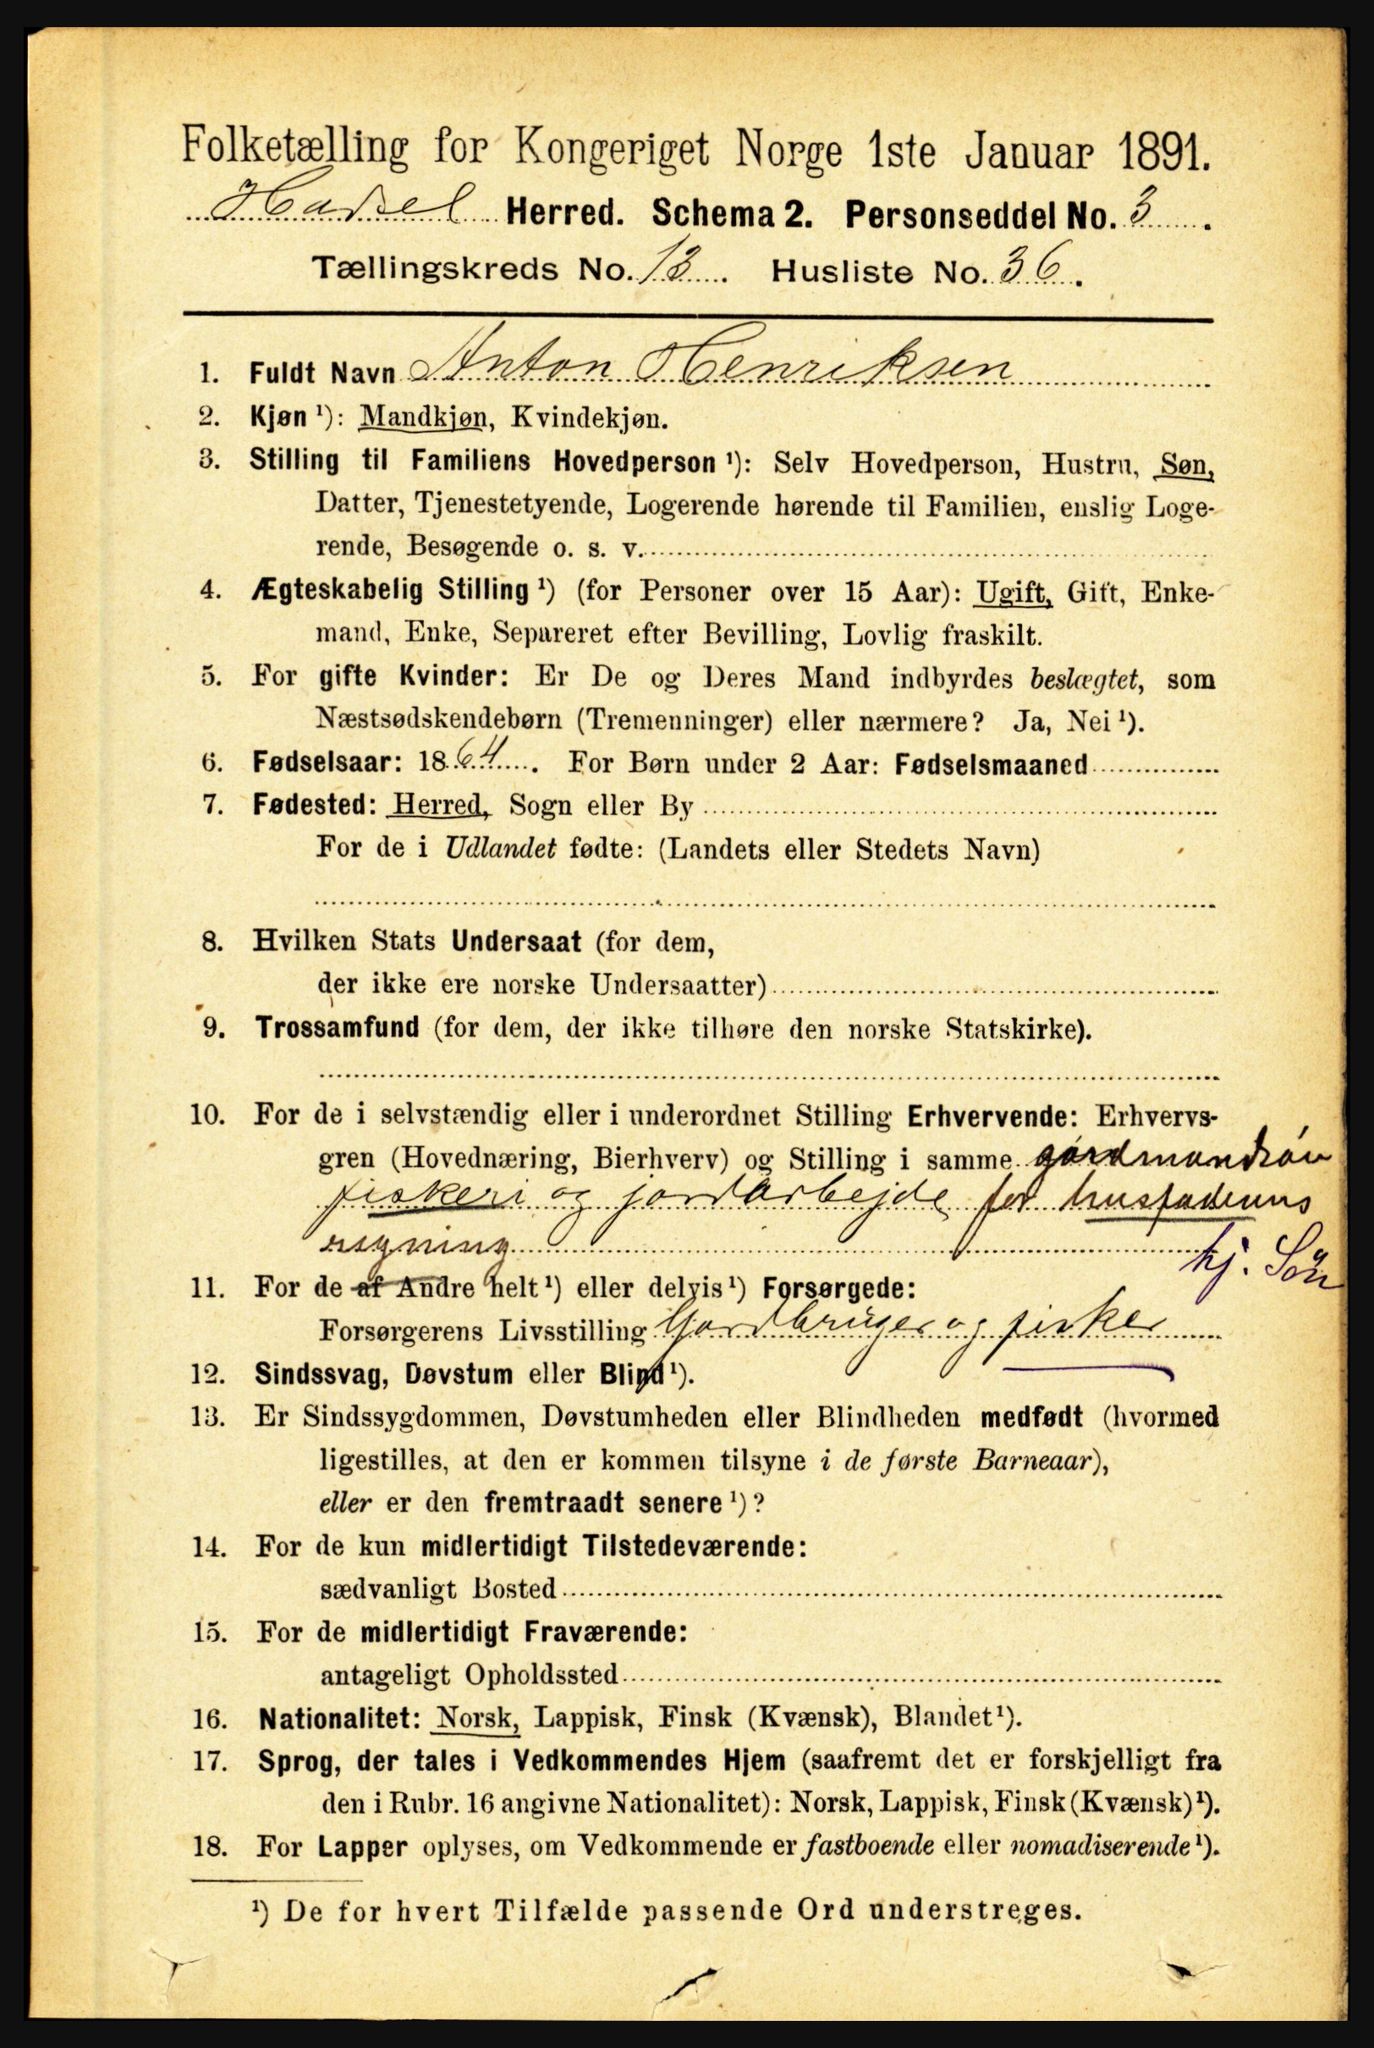 Folketælling for Kongeriget Norge 1ste Januar 1891.
Hadsel Herred. Schema 2. Personseddel No. 3.
Tællingskreds No. 13. Husliste No. 36.
1. Fuldt Navn Anton Henriksen
2. Kjøn ¹): Mandkjøn, Kvindekjøn.
3. Stilling til Familiens Hovedperson ¹): Selv Hovedperson, Hustru, Søn,
Datter, Tjenestetyende, Logerende hørende til Familien, enslig Loge-
rende, Besøgende o. s. v.
4. Ægteskabelig Stilling ¹) (for Personer over 15 Aar): Ugift, Gift, Enke-
mand, Enke, Separeret efter Bevilling, Lovlig fraskilt.
5. For gifte Kvinder: Er De og Deres Mand indbyrdes beslægtet, som
Næstsødskendebørn (Tremenninger) eller nærmere? Ja, Nei ¹).
6. Fødselsaar: 1864. For Børn under 2 Aar: Fødselsmaaned
7. Fødested: Herred, Sogn eller By
For de i Udlandet fødte: (Landets eller Stedets Navn)
8. Hvilken Stats Undersaat (for dem,
der ikke ere norske Undersaatter)
9. Trossamfund (for dem, der ikke tilhøre den norske Statskirke).
10. For de i selvstændig eller i underordnet Stilling Erhvervende: Erhvervs-
gren (Hovednæring, Bierhverv) og Stilling i samme
fiskeri og jordarbejde for husfaderens
regning
hj. Søn
11. For de af Andre helt ¹) eller delvis ¹) Forsørgede:
Forsørgerens Livsstilling Gardbruger og fisker
12. Sindssvag, Døvstum eller Blind ¹).
13. Er Sindssygdommen, Døvstumheden eller Blindheden medfødt (hvormed
ligestilles, at den er kommen tilsyne i de første Barneaar),
eller er den fremtraadt senere ¹)?
14. For de kun midlertidigt Tilstedeværende:
sædvanligt Bosted
15. For de midlertidigt Fraværende:
antageligt Opholdssted
16. Nationalitet: Norsk, Lappisk, Finsk (Kvænsk), Blandet ¹).
17. Sprog, der tales i Vedkommendes Hjem (saafremt det er forskjelligt fra
den i Rubr. 16 angivne Nationalitet): Norsk, Lappisk, Finsk (Kvænsk) ¹).
18. For Lapper oplyses, om Vedkommende er fastboende eller nomadiserende ¹).
¹) De for hvert Tilfælde passende Ord understreges.